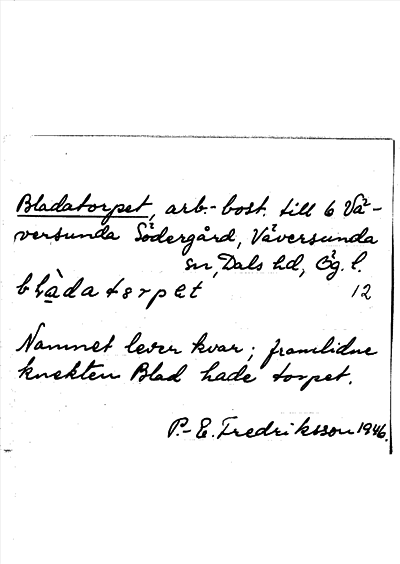 Bladatorpet, arb.-bost. till 6 Vä-
versunda Södergård, Väversunda
sn, Dals hd, Ög. l.
blàdatɘrpɘt 12
Namnet lever kvar; framlidne
knekten Blad hade torpet.
P.-E. Fredriksson 1946.